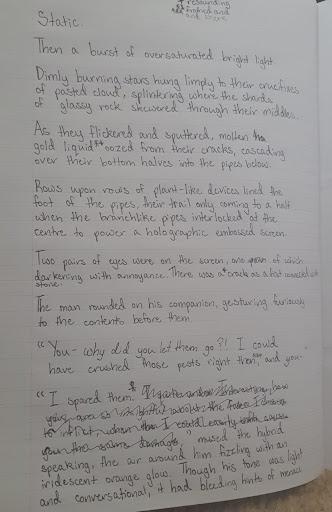 resounding
and
Static.
Then a burst of oversaturated bright light.
Dimly burning stars hung limply to their crucifixes
of pasted cloud, splintering where the shards
of glassy rock skewered through their middles.
As they flickered and sputtered, molten
gold liquid oozed from their cracks, cascading
over their bottom halves into the pipes below.
Rows upon rows of plant-like devices lined the
foot of the pipes, their trail only coming to a halt
when the branchlike pipes interlocked at the
centre to power a holographic embossed screen.
Two pairs of eyes were on the screen, one of which
darkening with annoyance. There was a crack as a fist connected with
stone.
The man rounded on his companion, gesturing furiously
to the contents before them.
"You- why did you let them go?! I could
have crushed those pests right then, and you-"
"I spared them.
," mused the hybrid
speaking, the air around him fizzling with an
iridescent orange glow. Though his tone was light
and conversational, it had bleeding hints of menace